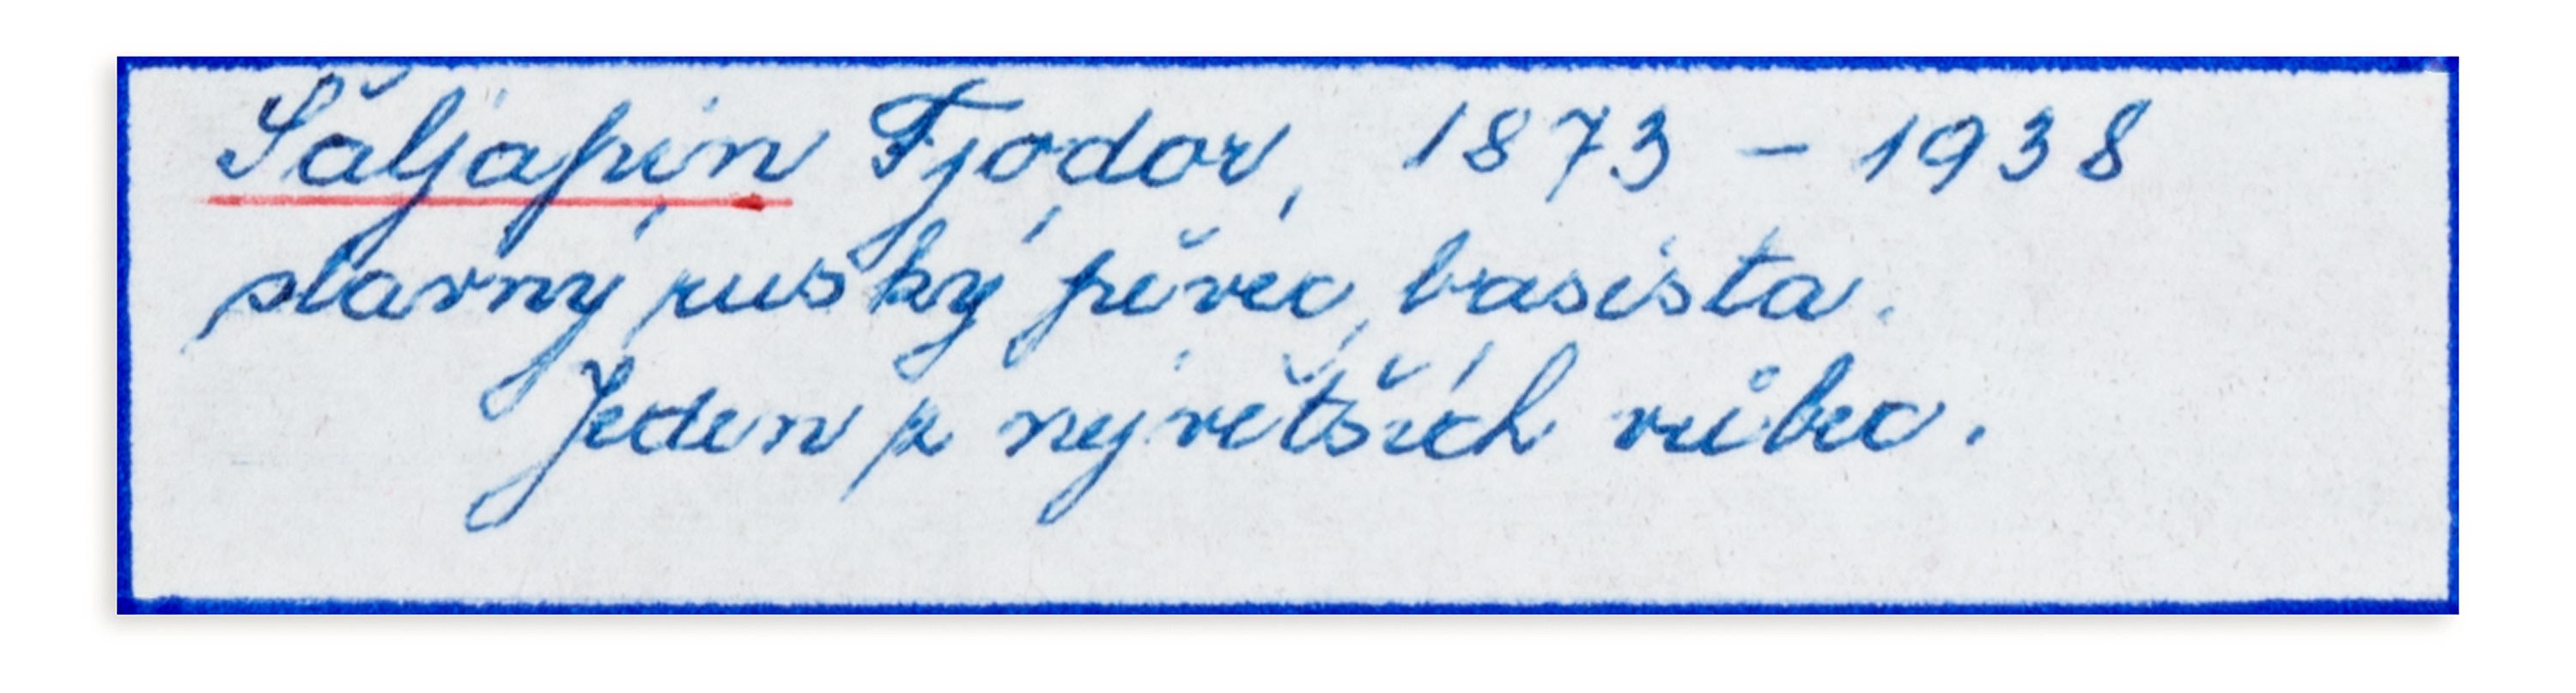 Šaljapin Fjodor, 1873 – 1938
slavný ruský pěvec, basista.
Jeden z největších vůbec.